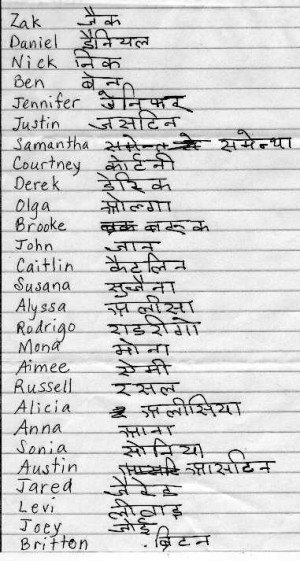 Zak जैक
Daniel डैनियल
Nick निक
Ben बेन
Jennifer जेनिफर
Justin जसटिन
Samantha समेन्था
Courtney कोर्टनी
Derek डेरिक
Olga ओल्गा
Brooke बरूक
John जान
Caitlin कैटलिन
Susana सुज़ैना
Alyssa अलीसा
Rodrigo राडरीगो
Mona मोना
Aimee ऐमी
Russell रसल
Alicia अलीसिया
Anna आना
Sonia सोनिया
Austin आसटिन
Jared जैरेड
Levi लीवाइ
Joey जोई
Britton ब्रिटन